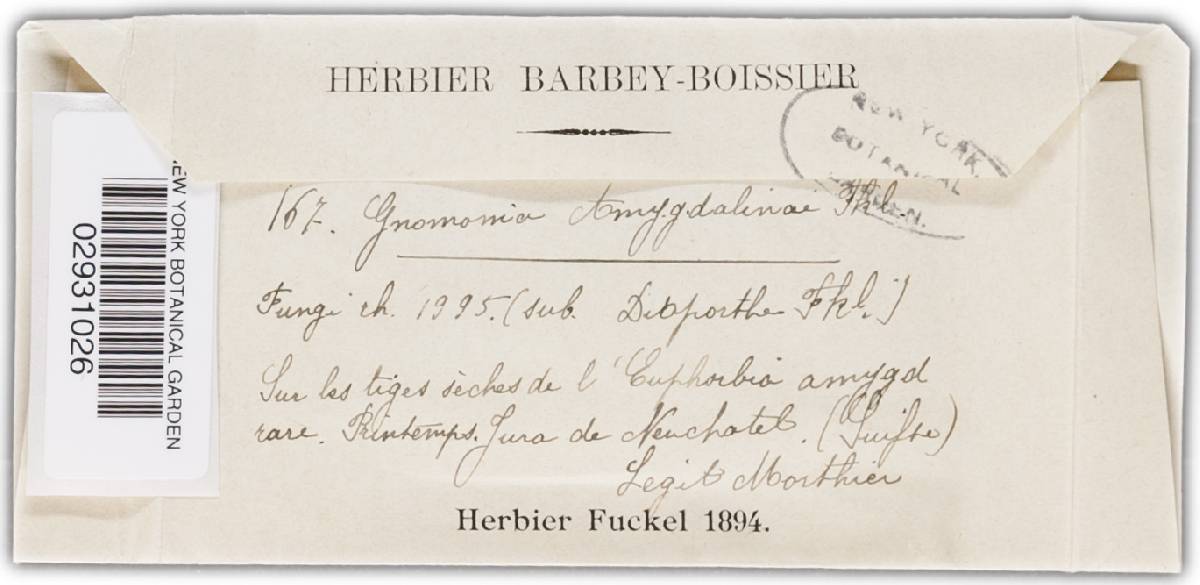 HERBIER BARBEY-BOISSIER
NEW YORK
BOTANICAL
GARDEN.
167. Gnomonia Amygdalinae Fkl.
Fungi rh. 1995. (sub. Diaporthe Fkl.)
Sur les tiges sèches de l'Euphorbia amygd
rare. Printemps. Jura de Neuchatel. (Suisse)
Legit Morthier
Herbier Fuckel 1894.
NEW YORK BOTANICAL GARDEN
02931026